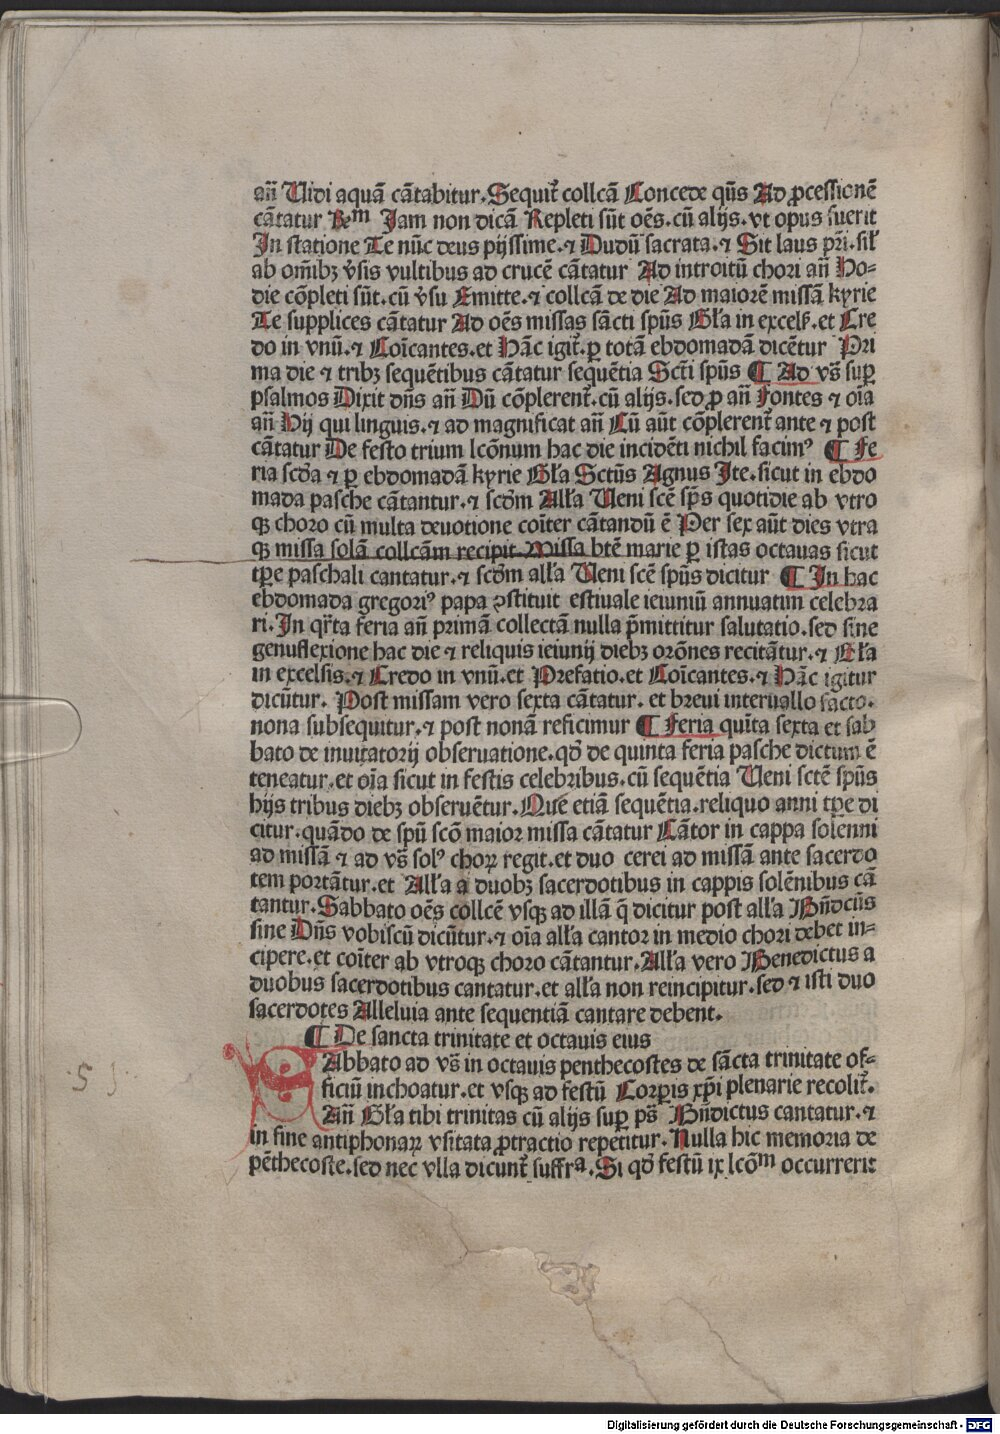 an̄ Uidi aquā cātabitur. Sequit᷑ collcā Concede qūs Ad ꝓcessionē
cātatur Rm Jam non dicā Repleti sūt oēs. cū alijs. vt opus fuerit
In statione Te nūc deus pijssime. ⁊ Dudū sacrata. ⁊ Sit laus pr̄i. sił
ab om̄ibꝫ v̓sis vultibus ad crucē cātatur Ad introitū chori an̄ Ho⸗
die cōpleti sūt. cū v̓su Emitte. ⁊ collcā de die Ad maiorē missā kyrie
Te supplices cātatur Ad oēs missas sācti spūs Gła in excels̓. et Cre
do in vnū. ⁊ Coīcantes. et Hāc igit᷑. ꝑ totā ebdomadā dicētur Pri
ma die ⁊ tribꝫ sequētibus cātatur sequētia Scti̅ spūs ¶ Ad vs̄ suꝑ
psalmos Dixit dn̄s an̄ Dū cōplerent᷑. cū alijs. sed ꝓ an̄ Fontes ⁊ oīa
an̄ Hij qui linguis. ⁊ ad magnificat an̄ Cū aūt cōplerent᷑ ante ⁊ post
cātatur De festo trium lcōnum hac die incidēti nichil facimꝰ ¶ Fe
ria scd̄a ⁊ ꝑ ebdomadā kyrie Gła Sctūs Agnus Ite. sicut in ebdo
mada pasche cātantur. ⁊ scd̄m Ałła Ueni scē sp̄s quotidie ab vtro
qꝫ choro cū multa deuotione coīter cātandū ē Per sex aūt dies vtra
qꝫ missa solā collcām recipit Missa btē marie ꝑ istas octauas sicut
tꝑe paschali cantatur. ⁊ scd̄m ałła Ueni scē spūs dicitur ¶ In hac
ebdomada gregoriꝰ papa ꝯstituit estiuale ieiuniū annuatim celebra
ri. In qr̄ta feria an̄ primā collectā nulla p̄mittitur salutatio. sed sine
genuflexione hac die ⁊ reliquis ieiunij diebꝫ orōnes recitātur. ⁊ Gła
in excelsis. ⁊ Credo in vnū. et Prefatio. et Coīcantes. ⁊ Hāc igitur
dicūtur. Post missam vero sexta cātatur. et breui interuallo facto.
nona subsequitur. ⁊ post nonā reficimur ¶ Feria quīta sexta et sab
bato de inuitatorij obseruatione. qd̄ de quinta feria pasche dictum ē
teneatur. et oīa sicut in festis celebribus. cū sequētia Ueni sctē spūs
hijs tribus diebꝫ obseruētur. Que etiā sequētia. reliquo anni tꝑe di
citur. quādo de spū scō maior missa cātatur Cātor in cappa solenni
ad missā ⁊ ad vs̄ solꝰ choꝝ regit. et duo cerei ad missā ante sacerdo
tem portātur. et Ałła a duobꝫ sacerdotibus in cappis solēnibus cā
tantur. Sabbato oēs collcē vsqꝫ ad illā q̄ dicitur post ałła Bn̄dcūs
sine Dn̄s vobiscū dicūtur. ⁊ oīa ałła cantor in medio chori debet in⸗
cipere. et coīter ab vtroqꝫ choro cātantur. Ałła vero Benedictus a
duobus sacerdotibus cantatur. et ałła non reincipitur. sed ⁊ isti duo
sacerdotes Alleluia ante sequentiā cantare debent.
¶ De sancta trinitate et octauis eius
SAbbato ad vs̄ in octauis penthecostes de sācta trinitate of⸗
ficiū inchoatur. et vsqꝫ ad festū Corꝑis xp̄i plenarie recolit᷑.
An̄ Gła tibi trinitas cū alijs suꝑ ps̄ Bn̄dictus cantatur. ⁊
in fine antiphonaꝝ vsitata ꝓtractio repetitur. Nulla hic memoria de
pēthecoste. sed nec vlla dicunt᷑ suffra. Si qd̄ festū ix lcōm occurrerit
5
Digitalisierung gefördert durch die Deutsche Forschungsgemeinschaft - DFG